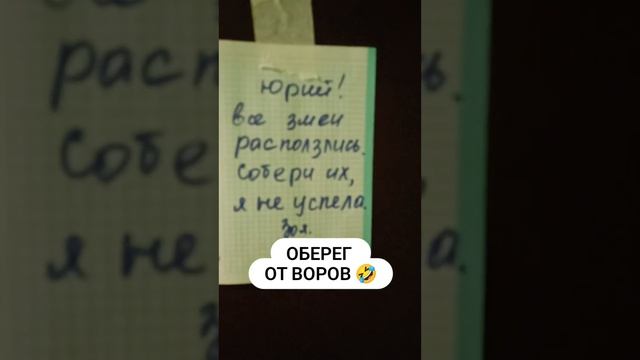 Юрий!
все змеи
расползлись.
Собери их,
я не успела.
Зоя.
ОБЕРЕГ
ОТ ВОРОВ 🤣